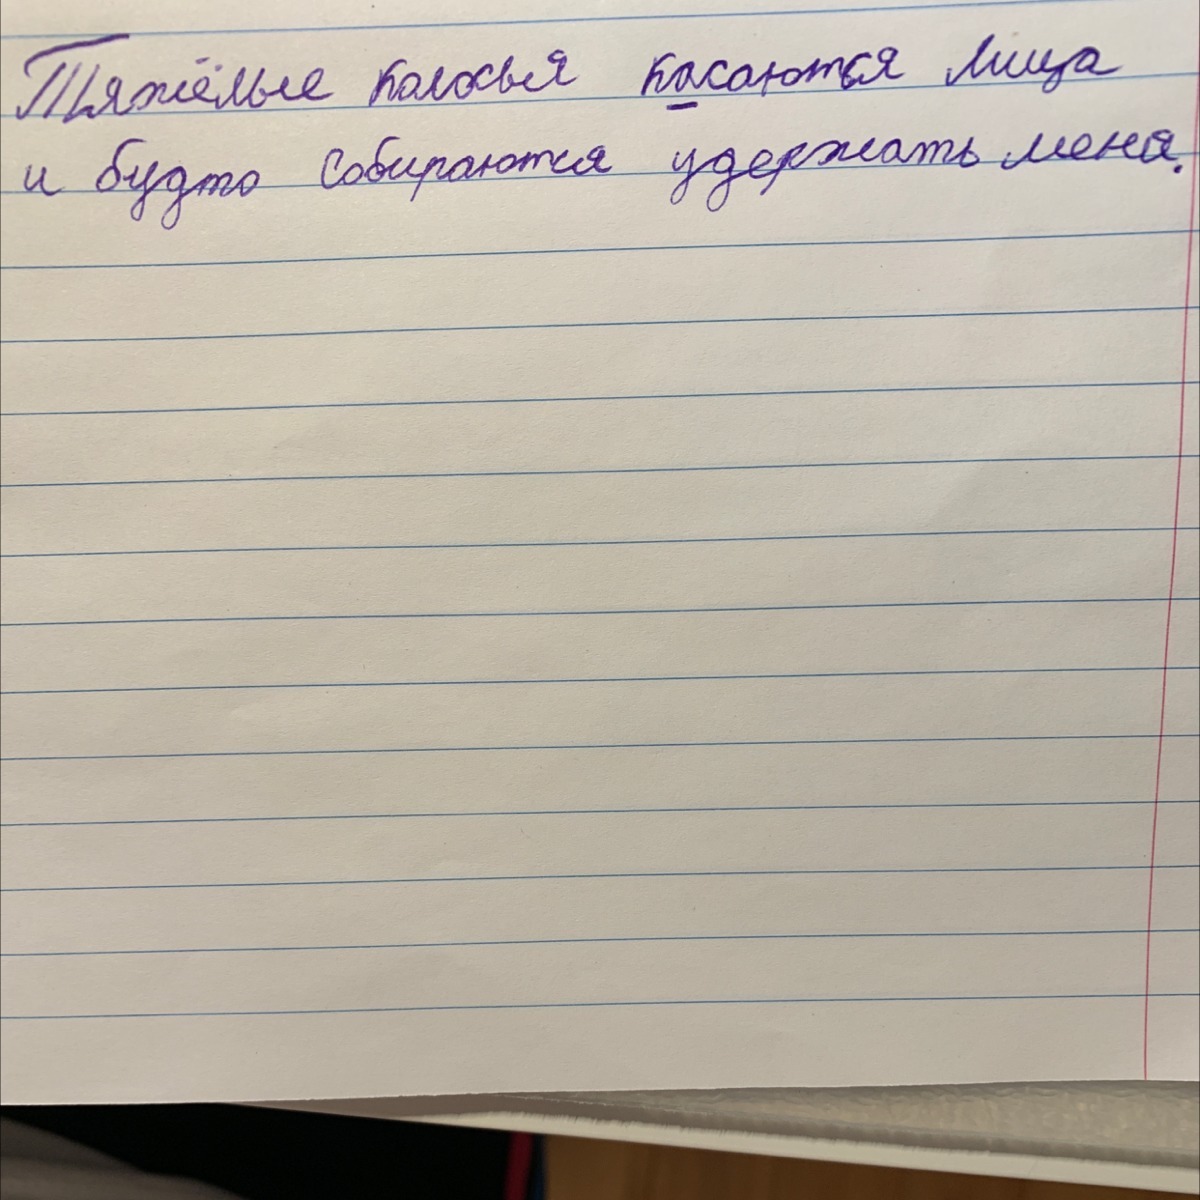 Тяжёлые колосья касаются лица
и будто собираются удержать меня.